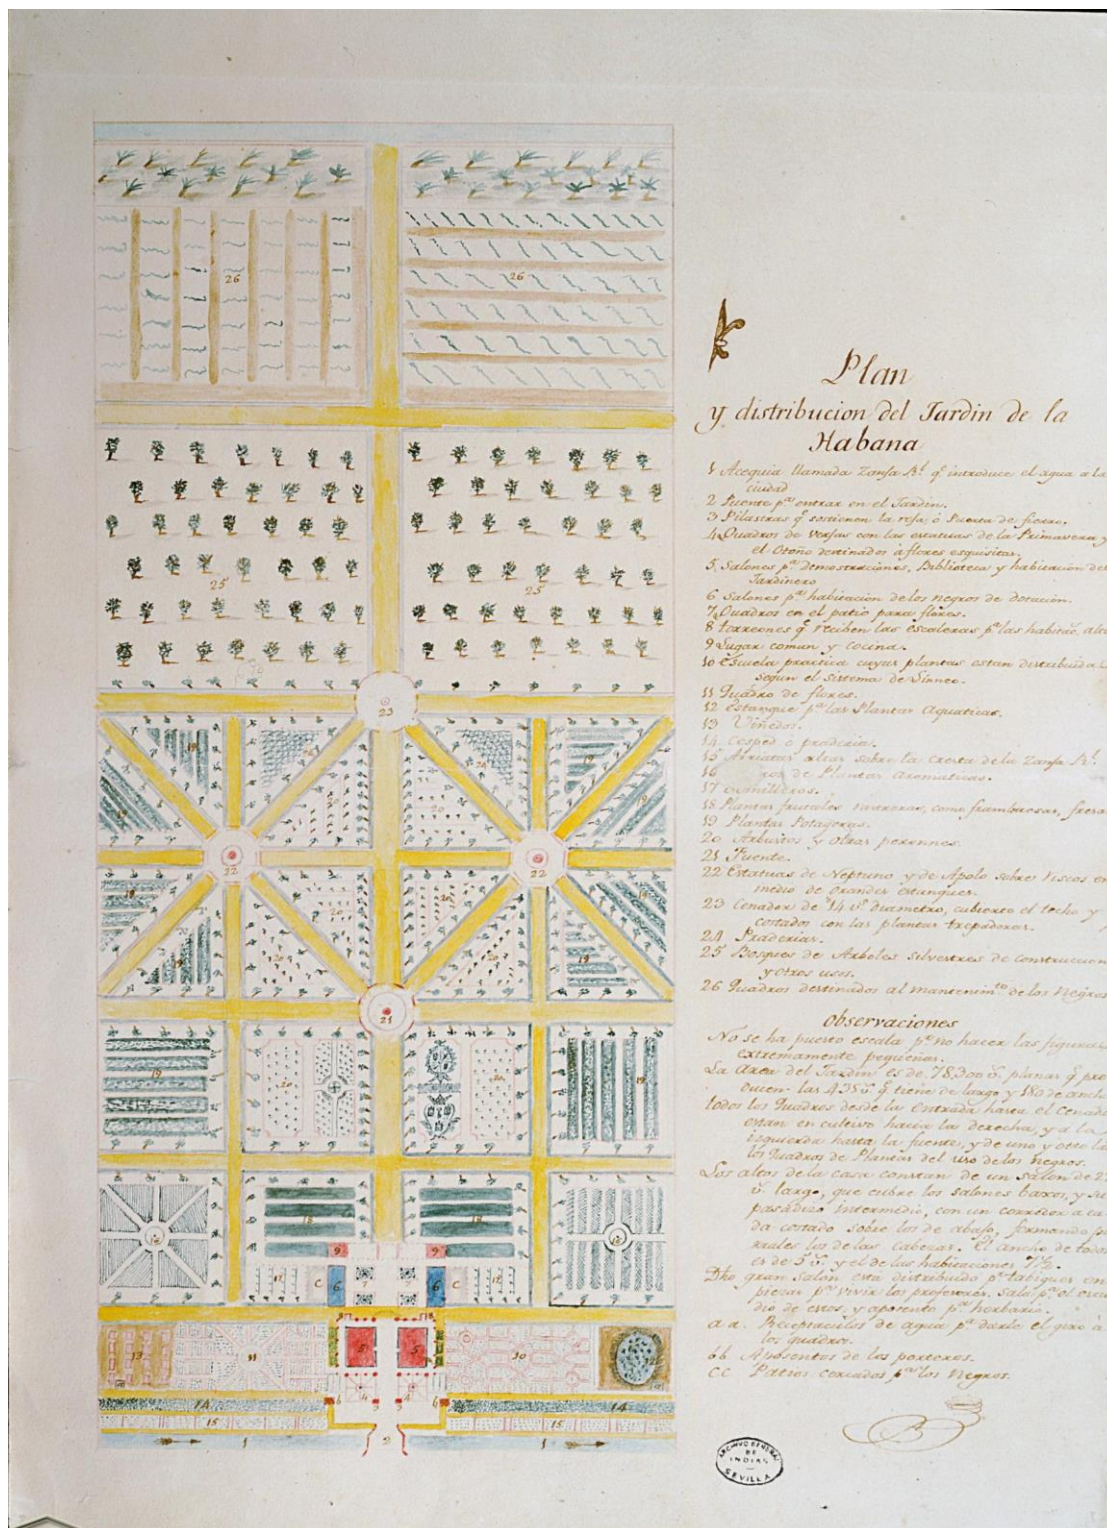 Plan
y distribucion del Jardin de la
Habana
1 Acequia llamada Zanja Rl. qe. introduce el agua a la
ciudad
2 Puente pa. entrar en el Jardin.
3 Pilastras qe. sostienen la reja, ò Puerta de fierro.
4 Quadros de verjas con las estatuas de la Primavera y
el Otoño destinados à flores esquisitas.
5 Salones pa. Demostraciones, Biblioteca y habitacion del
Jardinero
6 Salones pa. habitacion de los Negros de dotacion.
7 Quadros en el patio para flores.
8 torreones qe. reciben las escaleras pa. las habitac. altas
9 Lugar comun y cocina.
10 Escuela practica cuyas plantas estan distribuidas
segun el sistema de Linneo.
11 Quadro de flores.
12 Estanque pa. las Plantas Aquaticas.
13 Viñedos.
14 Cesped ò praderia.
15 Arriatas altas sobre la cresta de la Zanja Rl.
16 de Plantas Aromaticas.
17
18 Plantas frutales como frambuesas, fresas
19 Plantas Potageras.
20 Arbustos y otras perennes.
21 Fuente.
22 Estatuas de Neptuno y de Apolo sobre riscos en
medio de grandes estanques.
23 Cenador de 14 vs. diametro, cubierto el techo y
costados con las plantas trepadoras.
24 Praderias.
25 Bosques de Arboles silvestres de construccion
y otros usos.
26 Quadros destinados al mantenimto. de los Negros
Observaciones
No se ha puesto escala pr. no hacer las figuras
extremamente pequeñas.
La area del Jardin es de 78,300 vs. planas qe. pro
vienen las 435 vs. qe. tiene de largo y 180 de ancho
todos los Quadros desde la entrada hasta el Cenador
estan en cultivo hacia la derecha, y a la
izquierda hasta la fuente, y de uno y otro la
los Quadros de Plantas del uso de los negros.
Los altos de la casa constan de un salon de 27
vs. largo, que cubre los salones baxos, y su
pasadizo intermedio, con un corredor a ca
da costado sobre los de abajo, formando
los de las Cabezas. El ancho de todos
es de 5 vs. y el de las habitaciones 7½.
Dho. gran salon està distribuido pr. tabiques en
piezas pa. vivir los profesores, sala pa. el estu
dio de estos, y aposento pa. herbario.
a a. Receptaculos de agua pa. darle el giro à
los quadros.
bb Aposentos de los porteros.
CC Patios cercados pa. los Negros.
ARCHIVO GENERAL
DE
INDIAS
SEVILLA
26 26
25 25
23
24
20
22 22
19
20
21
19 20 19
18 18
9 9
17 C 6 6 C 17
5 5
13 11 10 12
14 b b 14
15 3 3 15
1 2 1